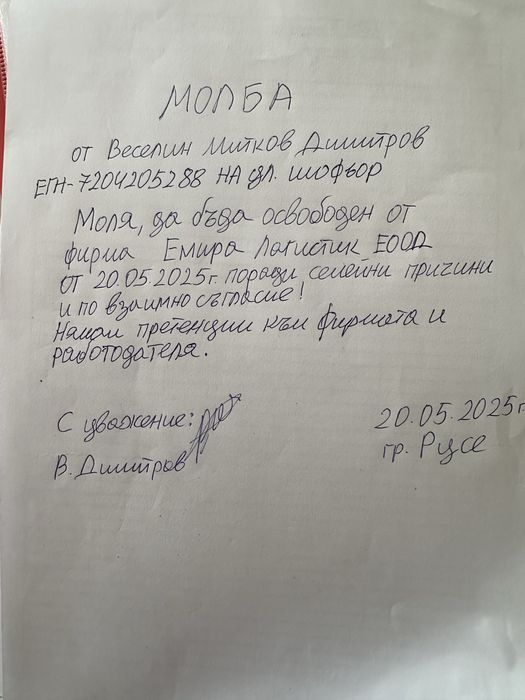 МОЛБА
от Веселин Митков Димитров
ЕГН-7204205288 НА дл. шофьор
Моля, да бъда освободен от
фирма Емира Логистик ЕООД
от 20.05.2025г. поради семейни причини
и по взаимно съгласие!
Нямам претенции към фирмата и
работодателя.
С уважение:
В. Димитров
20.05.2025г.
гр. Русе